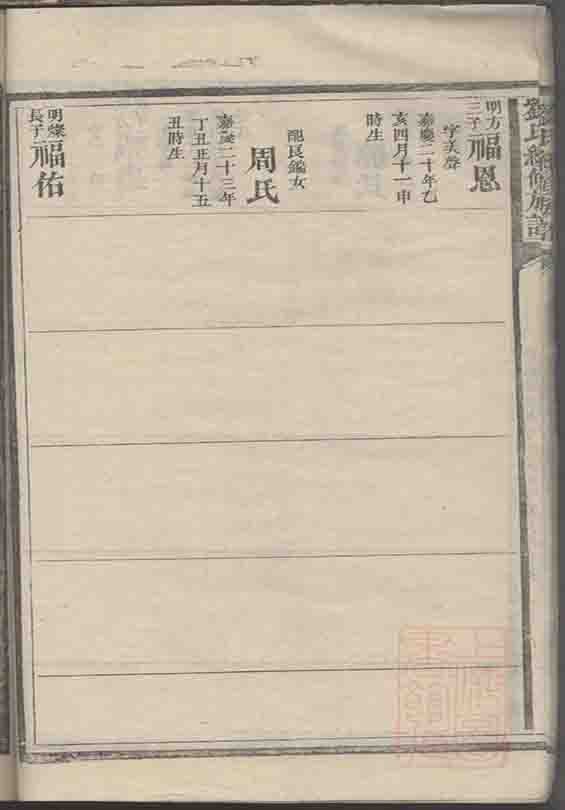 氏續修族譜
明方
三子
福恩
字美聲
嘉慶二十年乙
亥四月十一申
時生
配良鑑女
周氏
嘉慶二十三年
丁丑正月十五
丑時生
明燦
長子
福佑